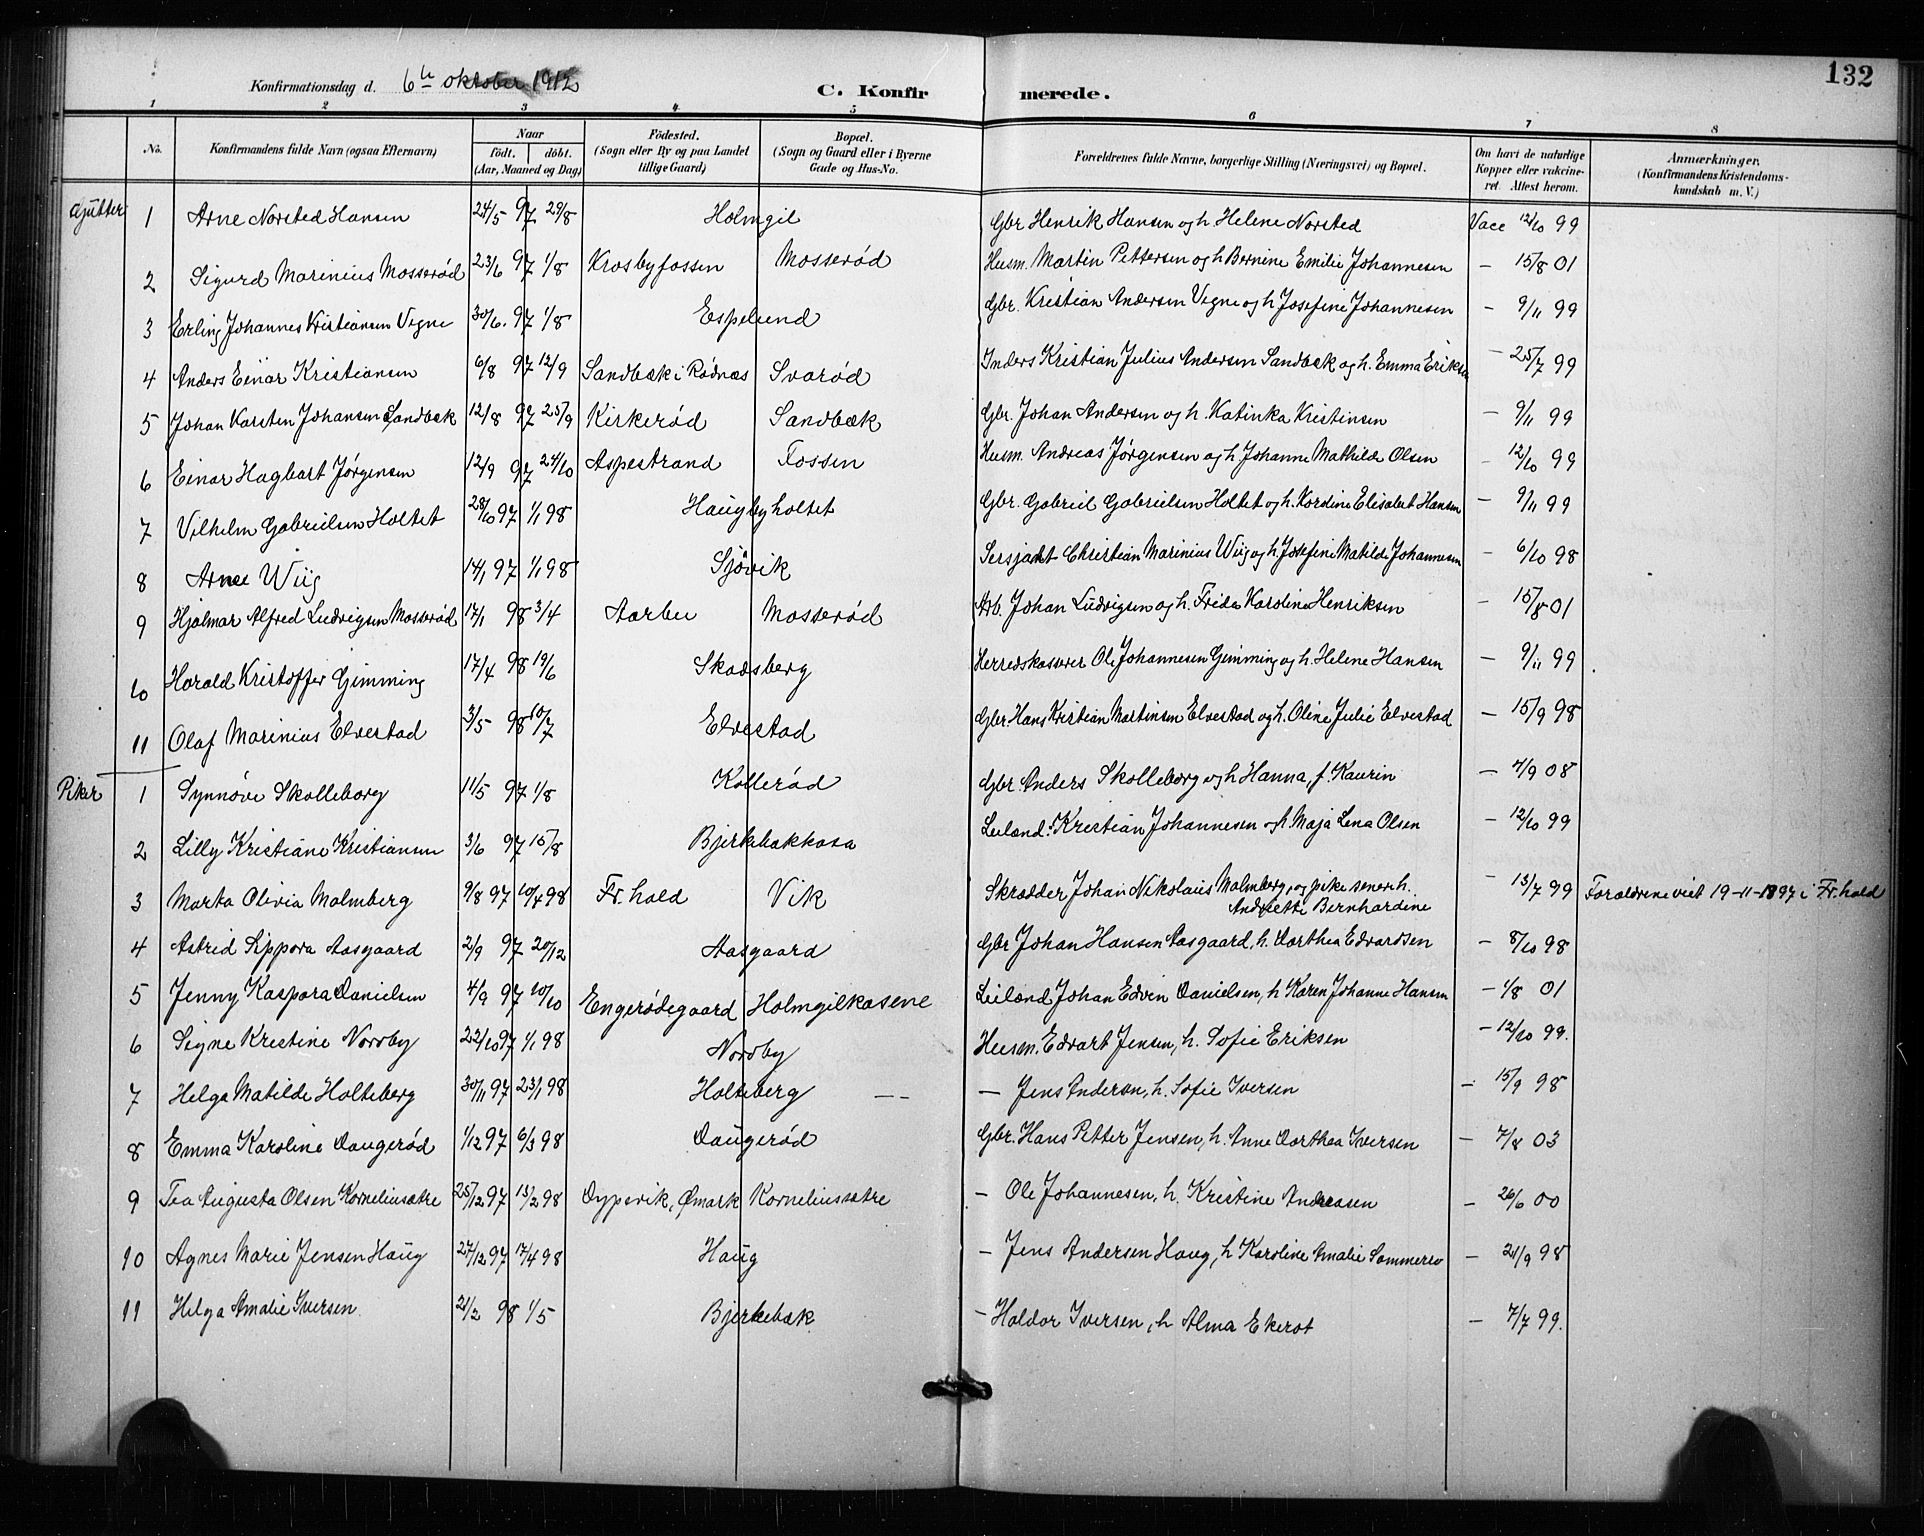 132
Konfirmationsdag d. 6te oktober 1912
C. Konfirmerede.
1 2 3 4 5 6 7 8
No. Konfirmandens fulde Navn (ogsaa Efternavn) Naar födt. döbt. (Aar, Maaned og Dag) Födested. (Sogn eller By og paa Landet tillige Gaard) Bopæl. (Sogn og Gaard eller i Byerne Gade og Hus-No. Forældrenes fulde Navne, borgerlige Stilling (Næringsvei) og Bopæl. Om havt de naturlige Kopper eller vakcineret. Attest herom. Anmærkninger. (Konfirmandens Kristendomskundskab m. V.)
Gutter 1 Arne Norsted Hansen 24/5 97 29/8 Holmgil Gbr Henrik Hansen og h. Helene Norsted Vacc 12/10 99
2 Sigurd Marinius Mosserød 23/6 97 1/8 Krosbyfossen Mosserød Husm. Martin Pettersen og h Bernine Emilie Johannesen — 15/8 01
3 Erling Johannes Kristiansen Vegne 30/6. 97 1/8 Espelund Gbr. Kristian Andersen Vegne og h Josefine Johannesen — 9/11 99
4 Anders Einar Kristiansen 6/8 97 12/9 Sandbæk i Rødnæs Svarød Inders Kristian Julius Andersen Sandbæk og h. Emma Eriksen — 25/7 99
5 Johan Karsten Johansen Sandbæk 12/8 97 25/9 Kirkerød Sandbæk Gbr. Johan Andersen og h. Katinka Kristinsen — 9/11 99
6 Einar Hagbart Jørgensen 12/9 97 24/10 Aspestrand Fossen Husm. Andreas Jørgensen og h Johanne Mathilde Olsen — 12/10 99
7 Vilhelm Gabrielsen Holtet 28/10 97 1/1 98 Haugbyholtet Gbr. Gabriel Gabrielsen Holtet og h. Kordine Elisabet Hansen — 9/11 99
8 Arne Wiig 14/1 97 1/1 98 Sjøvik Sersjadt Christian Marinius Wiig og h. Josefine Matilde Johannesen — 6/10 98
9 Hjalmar Alfred Ludvigsen Mosserød 17/1 98 3/4 Aarbu Mosserød Arb. Johan Ludvigsen og h. Frida Karoline Henriksen — 15/8 01
10 Harald Kristoffer Gimming 17/4 98 19/6 Skadsberg Herredskasserer Ole Johannesen Gimming og h. Helene Hansen — 9/11 99
11 Olaf Marinius Elvestad 3/5 98 10/7 Elvestad Gbr. Hans Kristian Martinsen Elvestad og h. Oline Julie Elvestad — 15/9 98
Piker 1 Synnøve Skolleborg 11/5 97 1/8 Kollerød Gbr. Anders Skolleborg og h Hanna, f. Kaurin — 7/9 08
2 Lilly Kristiane Kristiansen 3/6 97 15/8 Bjerkebakkasa Leiland. Kristian Johannesen og h. Maja Lena Olsen — 12/10 99
3 Marta Olivia Malmberg 9/8 97 10/4 98 Fr. hald Vik Skrædder Johan Nikolaus Malmberg, og pike senere h. — 13/7 99 Forældrene viet 19-11-1897 i Fr. hald
Andrsette Bernhardine
4 Astrid Sippora Aasgaard 2/9 97 20/12 Aasgaard Gbr Johan Hansen Aasgaard, h. Dorthea Edvardsen — 8/10 98
5 Jenny Kaspara Danielsen 4/9 97 10/10 Engerødegaard Holmgilkasene Leiland Johan Edvin Danielsen, h Karen Johanne Hansen — 1/8 01
6 Signe Kristine Nordby 22/10 97 1/1 98 Nordby Husm. Edvart Jensen, h. Sofie Eriksen — 12/10 99.
7 Helga Matilde Holteberg 30/11 97 23/1 98 Holteberg — — — Jens Andersen, h. Sofie Iversen — 15/9 98
8 Emma Karoline Daugerød 1/12 97 6/3 98 Daugerød Gbr. Hans Petter Jensen, h. Anne Dorthea Iversen — 7/8 03
9 Tea Augusta Olsen Korneliussætre 25/12 97 13/2 98 Dypevik, Ømark Korneliussætre — Ole Johannesen, h. Kristine Andreasen — 26/6 00
10 Agnes Marie Jensen Haug 27/12 97 17/4 98 Haug — Jens Andersen Haug, h Karoline Amalie Sommerro — 21/9 98
11 Helga Amalie Iversen. 21/2 98 1/5 Bjerkebæk — Haldor Iversen, h Alma Ekerot — 7/7 99.